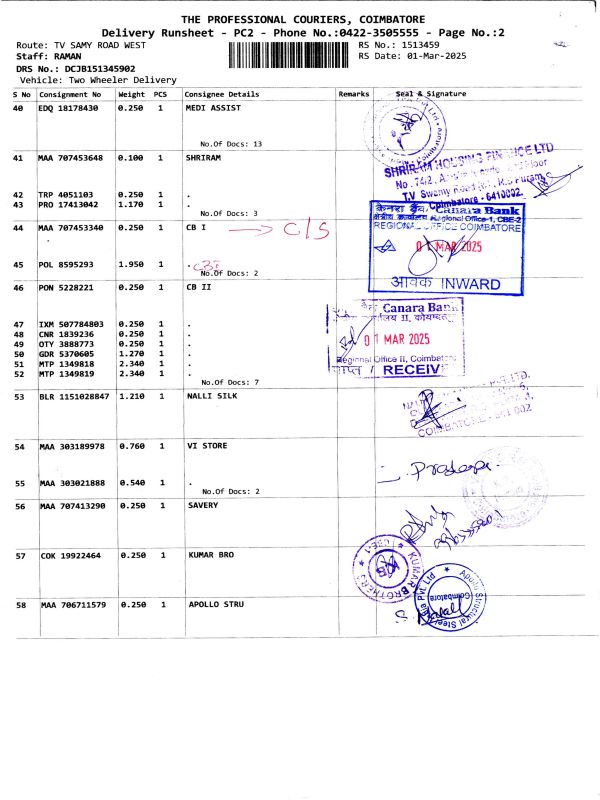 THE PROFESSIONAL COURIERS, COIMBATORE
Delivery Runsheet - PC2 - Phone No.:0422-3505555 - Page No.:2
Route: TV SAMY ROAD WEST
RS No.: 1513459
Staff: RAMAN
RS Date: 01-Mar-2025
DRS No.: DCJB151345902
Vehicle: Two Wheeler Delivery
S No Consignment No Weight PCS Consignee Details Remarks Seal & Signature
40 EDQ 18178430 0.250 1 MEDI ASSIST
No.Of Docs: 13
41 MAA 707453648 0.100 1 SHRIRAM
SHRIRAM HOUSING FINANCE LTD
No. 74/2,
T.V Swamy Road
Coimbatore - 641002.
42 TRP 4051103 0.250 1 .
43 PRO 17413042 1.170 1 .
No.Of Docs: 3
केनरा बैंक, Canara Bank
क्षेत्रीय कार्यालय Regional Office-1, CBE-2
REGIONAL OFFICE COIMBATORE
01 MAR 2025
आवक INWARD
44 MAA 707453340 0.250 1 CB I → C/S
.
45 POL 8595293 1.950 1 . CBI
No.Of Docs: 2
46 PON 5228221 0.250 1 CB II
Canara Bank
01 MAR 2025
Regional Office II, Coimbatore
प्राप्त / RECEIV
47 IXM 507784803 0.250 1 .
48 CNR 1839236 0.250 1 .
49 OTY 3888773 0.250 1 .
50 GDR 5370605 1.270 1 .
51 MTP 1349818 2.340 1 .
52 MTP 1349819 2.340 1 .
No.Of Docs: 7
53 BLR 1151028847 1.210 1 NALLI SILK
COIMBATORE - 641 002
54 MAA 303189978 0.760 1 VI STORE
55 MAA 303021888 0.540 1 .
No.Of Docs: 2
56 MAA 707413290 0.250 1 SAVERY
57 COK 19922464 0.250 1 KUMAR BRO
KUMAR BROTHERS
CBE-1
58 MAA 706711579 0.250 1 APOLLO STRU
Apollo Structural Steel India Pvt. Ltd
Coimbatore